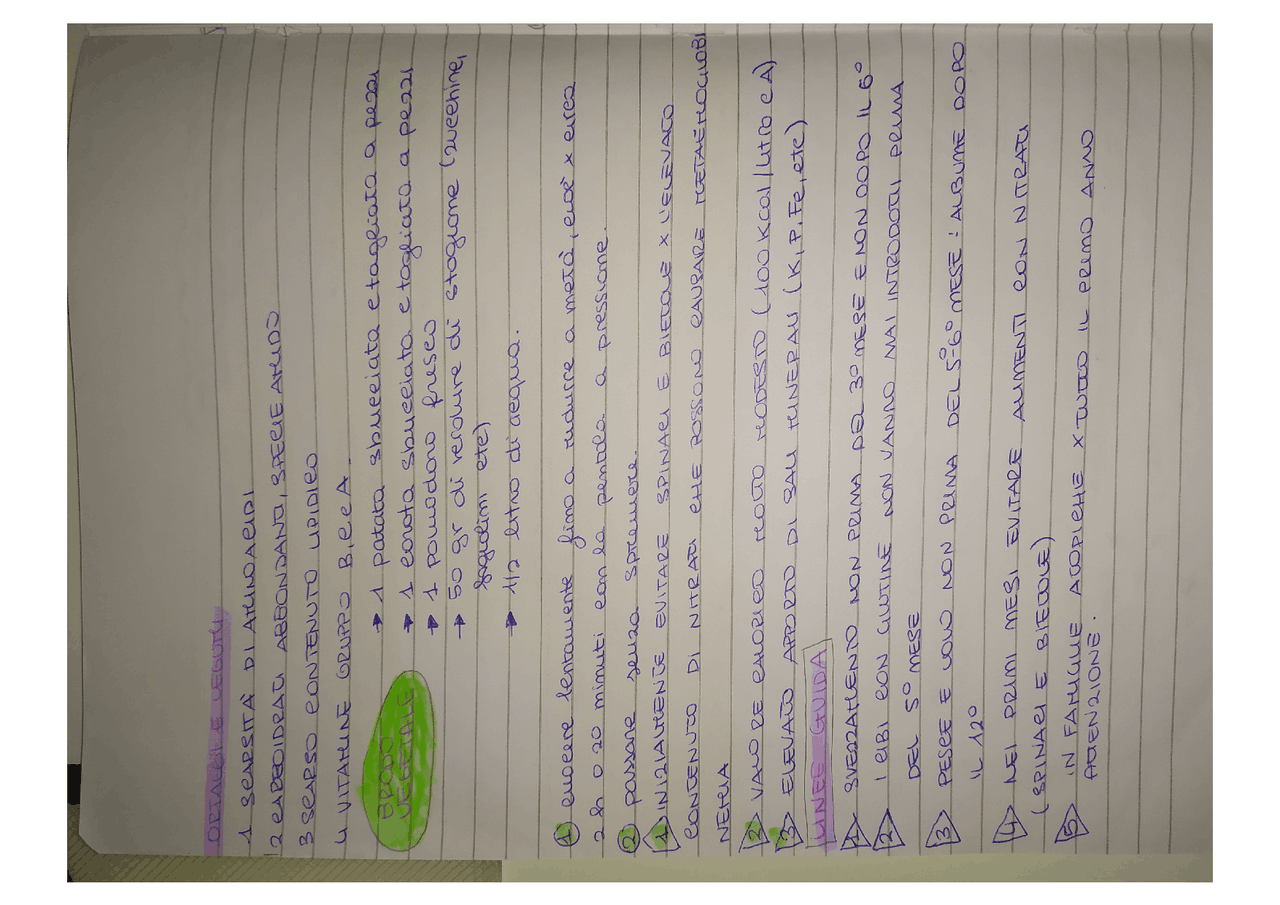 ORTAGGI E LEGUMI
1 SCARSITÀ DI AMINOACIDI
2 CARBOIDRATI ABBONDANTI, SPECIE AMIDO
3 SCARSO CONTENUTO LIPIDICO
4 VITAMINE GRUPPO B, C e A.
BRODO VEGETALE
→ 1 patata sbucciata e tagliata a pezzi
→ 1 carota sbucciata e tagliata a pezzi
→ 1 pomodoro fresco
→ 50 gr di verdure di stagione (zucchine,
fagiolini etc)
→ 1/2 litro di acqua.
1 cuocere lentamente fino a ridurre a metà, cioè x circa
2h o 20 minuti con la pentola a pressione.
2 passare senza spremere.
1 INIZIALMENTE EVITARE SPINACI E BIETOLE X L'ELEVATO
CONTENUTO DI NITRATI CHE POSSONO CAUSARE METAEMOGLOBI
NEMIA
2 VALORE CALORICO MOLTO MODESTO (100 Kcal/litro CA)
3 ELEVATO APPORTO DI SALI MINERALI (K, P, Fe, etc)
LINEE GUIDA
1 SVEZZAMENTO NON PRIMA DEL 3° MESE E NON DOPO IL 6°
2 I CIBI CON GLUTINE NON VANNO MAI INTRODOTTI PRIMA
DEL 5° MESE
3 PESCE E UOVO NON PRIMA DEL 5-6° MESE: ALBUME DOPO
IL 12°
4 NEI PRIMI MESI EVITARE ALIMENTI CON NITRATI
(SPINACI E BIETOLE)
5 IN FAMIGLIE ATOPICHE X TUTTO IL PRIMO ANNO
ATTENZIONE.